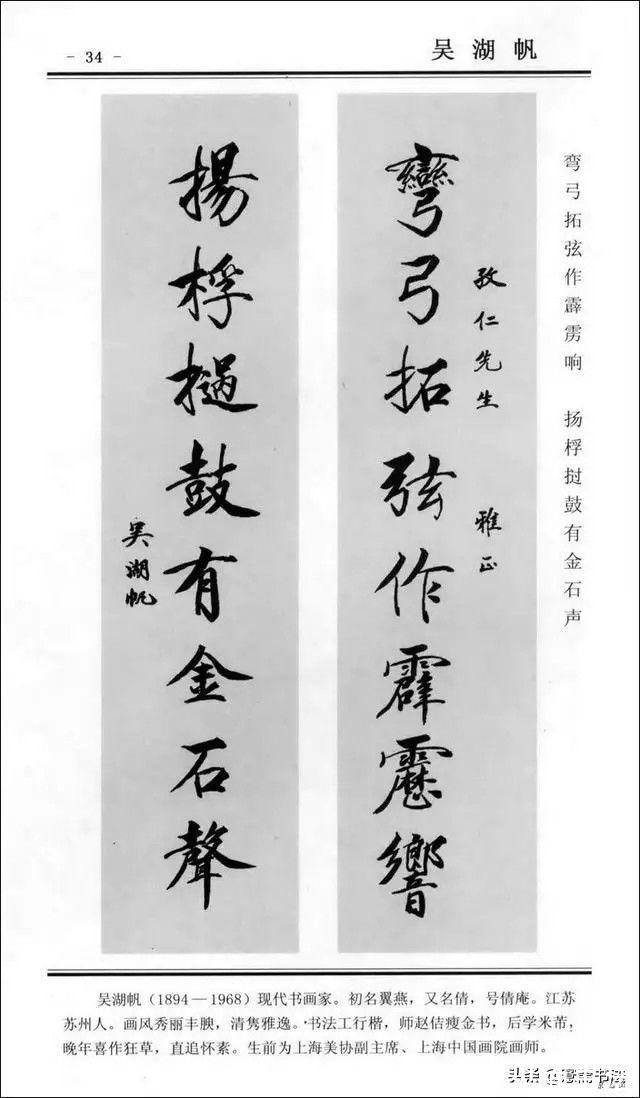 - 34 -
吴湖帆
弯弓拓弦作霹雳响 扬桴挝鼓有金石声
孜仁先生 雅正
彎弓拓弦作霹靂響
揚桴撾鼓有金石聲
吴湖帆
吴湖帆（1894—1968）现代书画家。初名翼燕，又名倩，号倩庵。江苏
苏州人。画风秀丽丰腴，清隽雅逸。书法工行楷，师赵佶瘦金书，后学米芾，
晚年喜作狂草，直追怀素。生前为上海美协副主席、上海中国画院画师。
头条